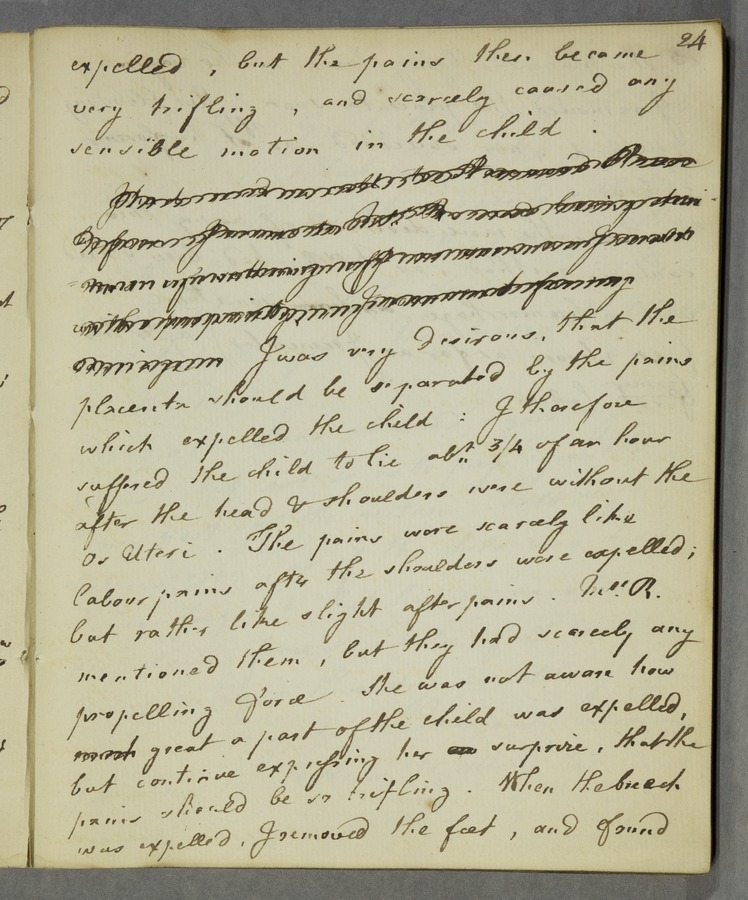 24
expelled, but the pains then became
very trifling, and scarcely caused any
sensible motion in the child.
I was very desirous, that the
placenta should be separated by the pains
which expelled the child : I therefore
suffered the child to lie abt. 3/4 of an hour
after the head & shoulders were without the
Os Uteri. The pains were scarcely like
labour pains after the shoulders were expelled;
but rather like slight after pains. Mrs. R.
mentioned them, but they had scarcely any
propelling force. She was not aware how
great a part of the child was expelled,
but continue expressing her surprize, that the
pains should be so trifling. When the breech
was expelled, I removed the feet, and found